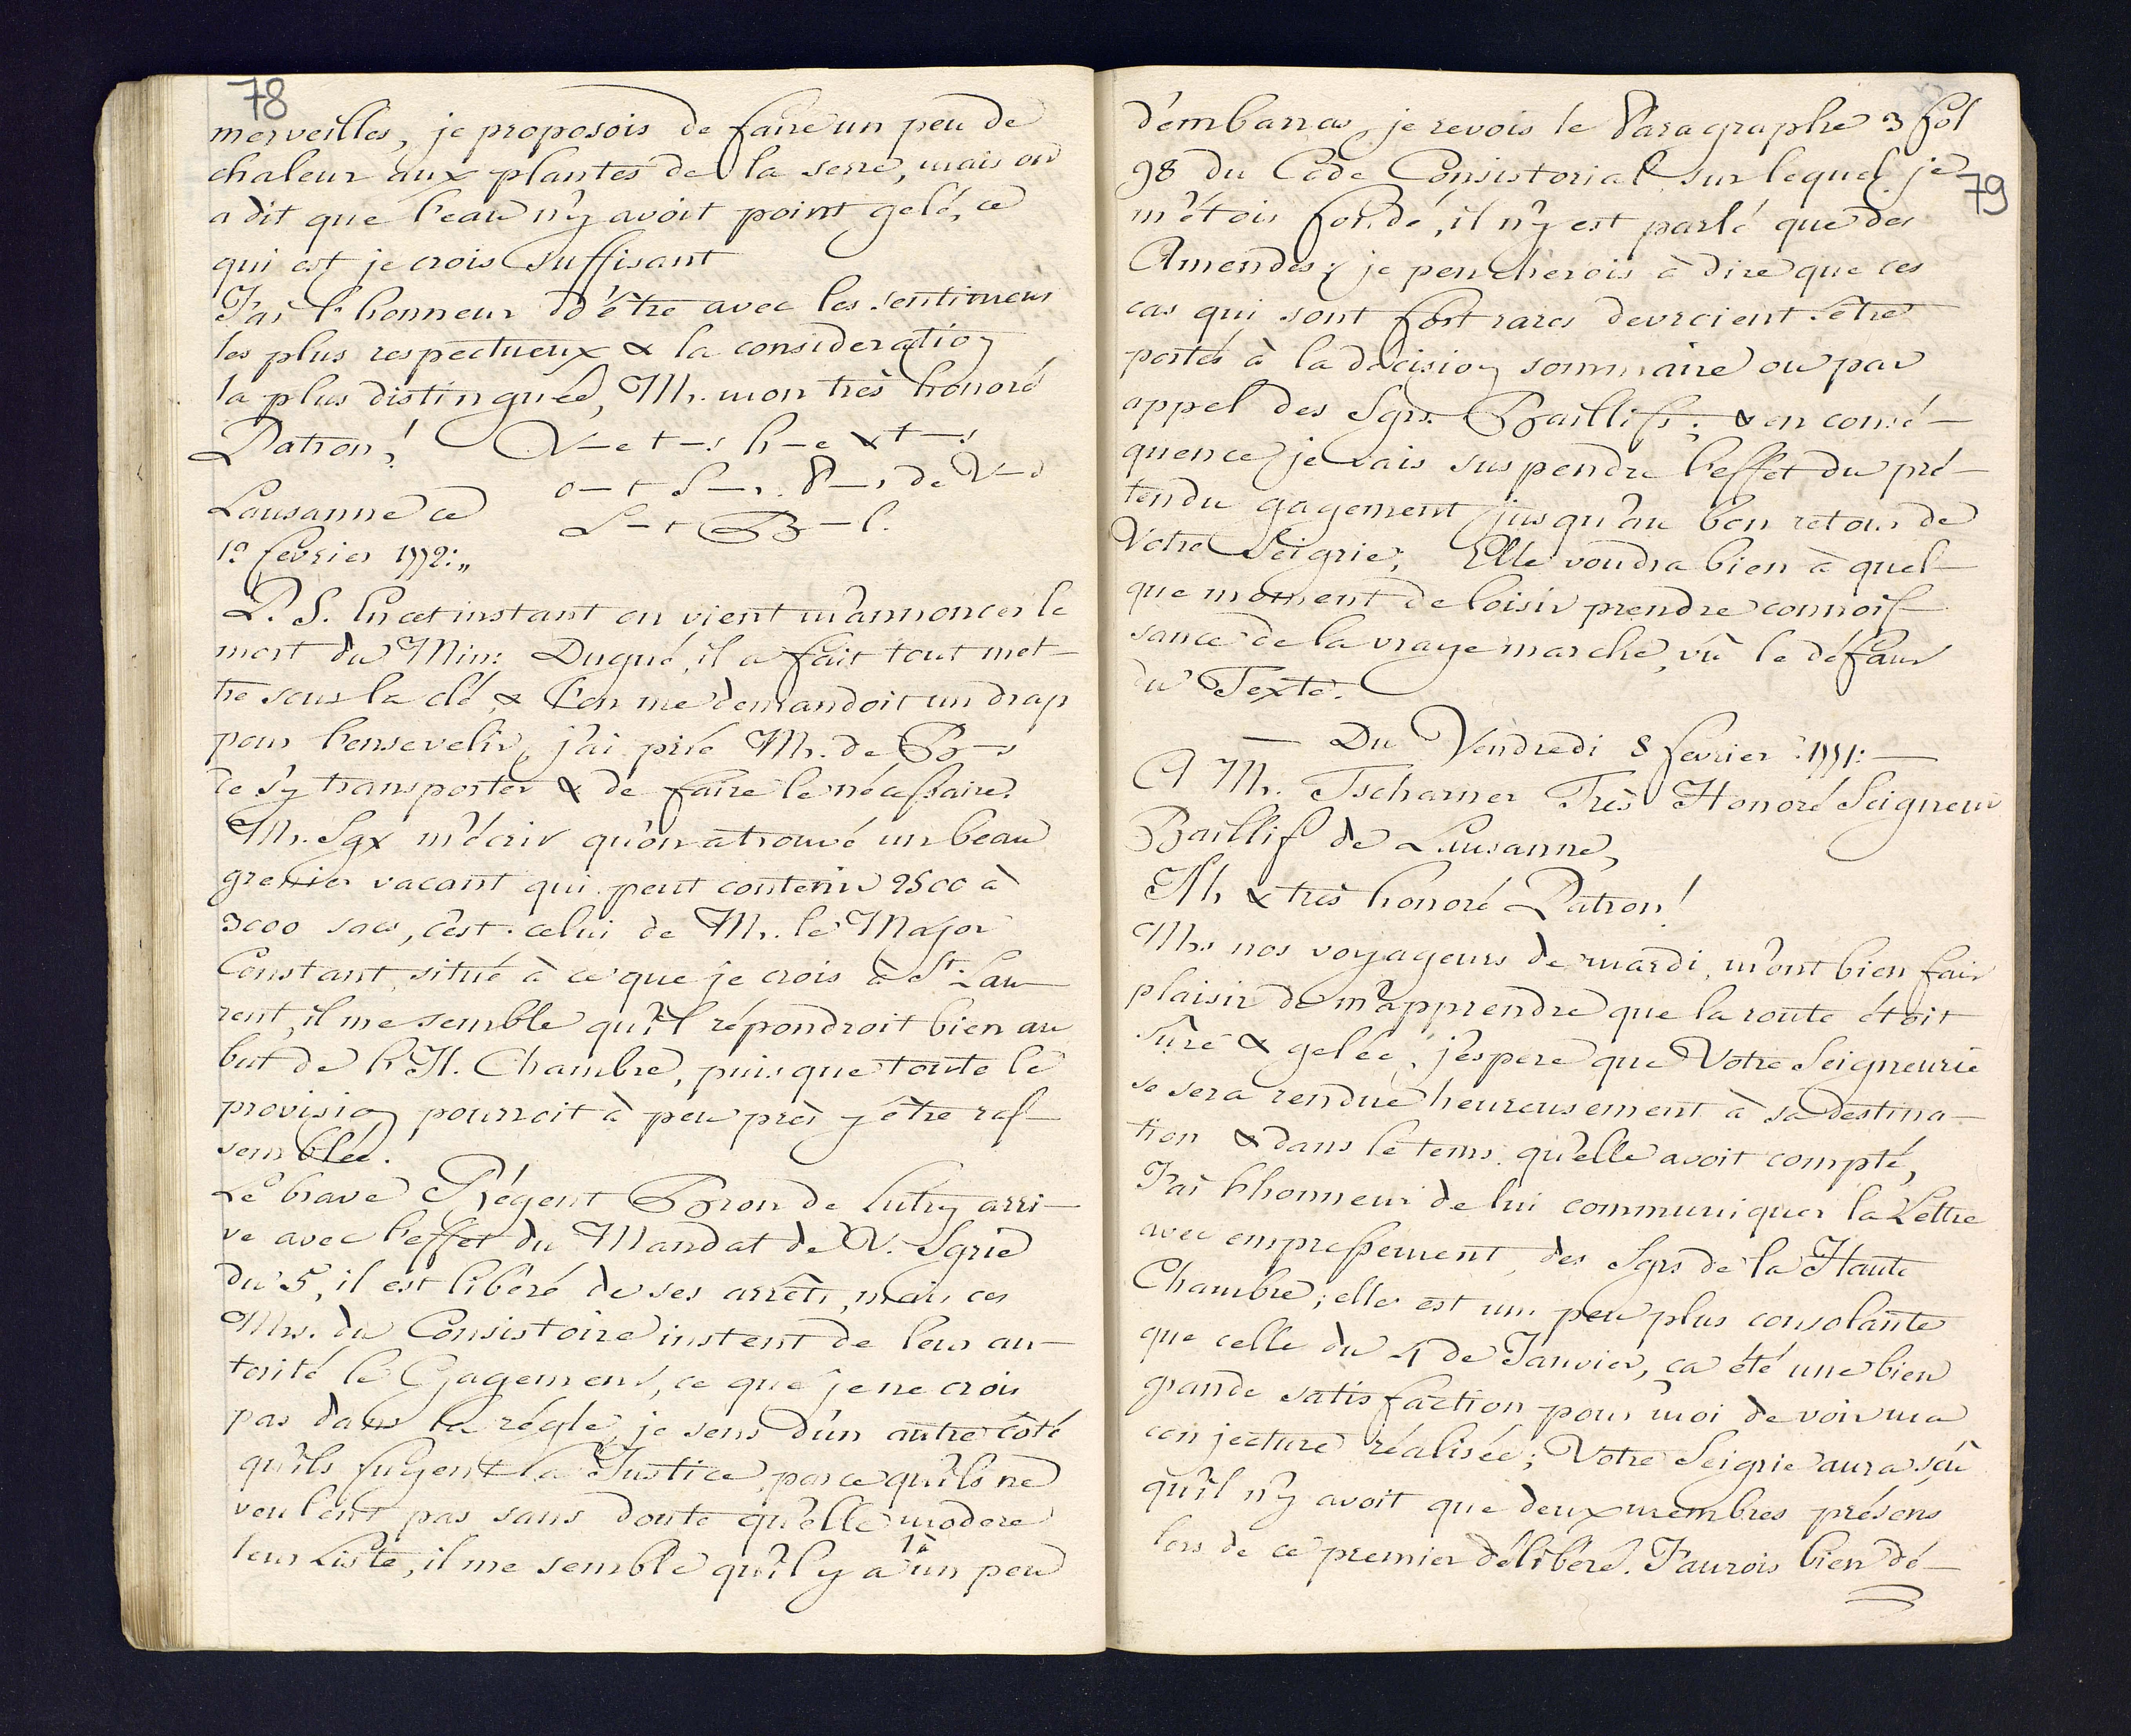 78
merveilles, je proposois de faire un peu de
chaleur aux plantes de la serre, mais on
a dit que l'eau n'y avoit point gelé, ce
qui est je crois suffisant
J'ai l'honneur d'être avec les sentimens
les plus respectueux & la consideration
la plus distinguée, Mr. mon très honoré
Patron! V—e t—s h—e & t—s
o—t S—r. P—s de V—d
Lausanne ce L—t B—l.
fevrier 1772:„
P. S. En cet instant on vient m'annoncer le
mort du Min: Dugué, il a fait tout met—
tre sous la clé, & l'on me demandoit un drap
pour l'ensevelir, j'ai prié Mr. de B—s
de s'y transporter & de faire le nécessaire.
Mr. Sgx m'écrit qu'on a trouvé un beau
grenier vacant qui peut contenir 2500 à
3000 sacs, c'est celui de Mr. le Major
Constant, situé à ce que je crois à St. Lau—
rent, il me semble qu'il répondroit bien au
but de l'H. Chambre, puisque toute le
provision pourroit à peu près y être ras—
semblée.
Le brave Régent Bron de Lutry arri—
ve avec l'effet du Mandat de V. Sgrie
du 5, il est libéré de ses arrêts, mais ces
Mrs. du Consistoire instent de leur au—
torité le Gagement, ce que je ne crois
pas dans la régle, je sens d'un autre côté
qu'ils fuyent la Justice, parce qu'ils ne
veulent pas sans doute qu'elle modere
leur Liste, il me semble qu'il y a là un peu
79
d'embarras, je revois le Paragraphe 3 fol
98 du Code Consistorial sur lequel je
m'étois fondé, il n'y est parlé que des
Amendes; je pencherois à dire que ces
cas qui sont fort rares devroient être
portés à la décision sommaire ou par
appel des Sgrs. Baillifs; & en consé—
quence je vais suspendre l'effet du pré—
tendu gagement jusqu'au bon retour de
Votre Seigrie; Elle voudra bien à quel—
que moment de loisir prendre connois—
sance de la vraye marche, vû le défaut
du Texte.
— Du Vendredi 8 fevrier 1771: —
A Mr. Tscharner Très Honoré Seigneur
Baillif de Lausanne,
Mr & très honoré Patron!
Mrs nos voyageurs de mardi, m'ont bien fait
plaisir de m'apprendre que la route étoit
sûre & gelée, j'espere que Votre Seigneurie
se sera rendue heureusement à sa destina—
tion & dans le tems qu'elle avoit compté,
J'ai l'honneur de lui communiquer la Lettre
avec empressement, des Sgrs de la Haute
Chambre; elle est un peu plus consolante
que celle du 4 de Janvier, ça été une bien
grande satisfaction pour moi de voir ma
conjecture réalisée; Votre Seigrie aura sçû
qu'il n'y avoit que deux membres présens
lors de ce premier délibéré. J'aurois bien dé—